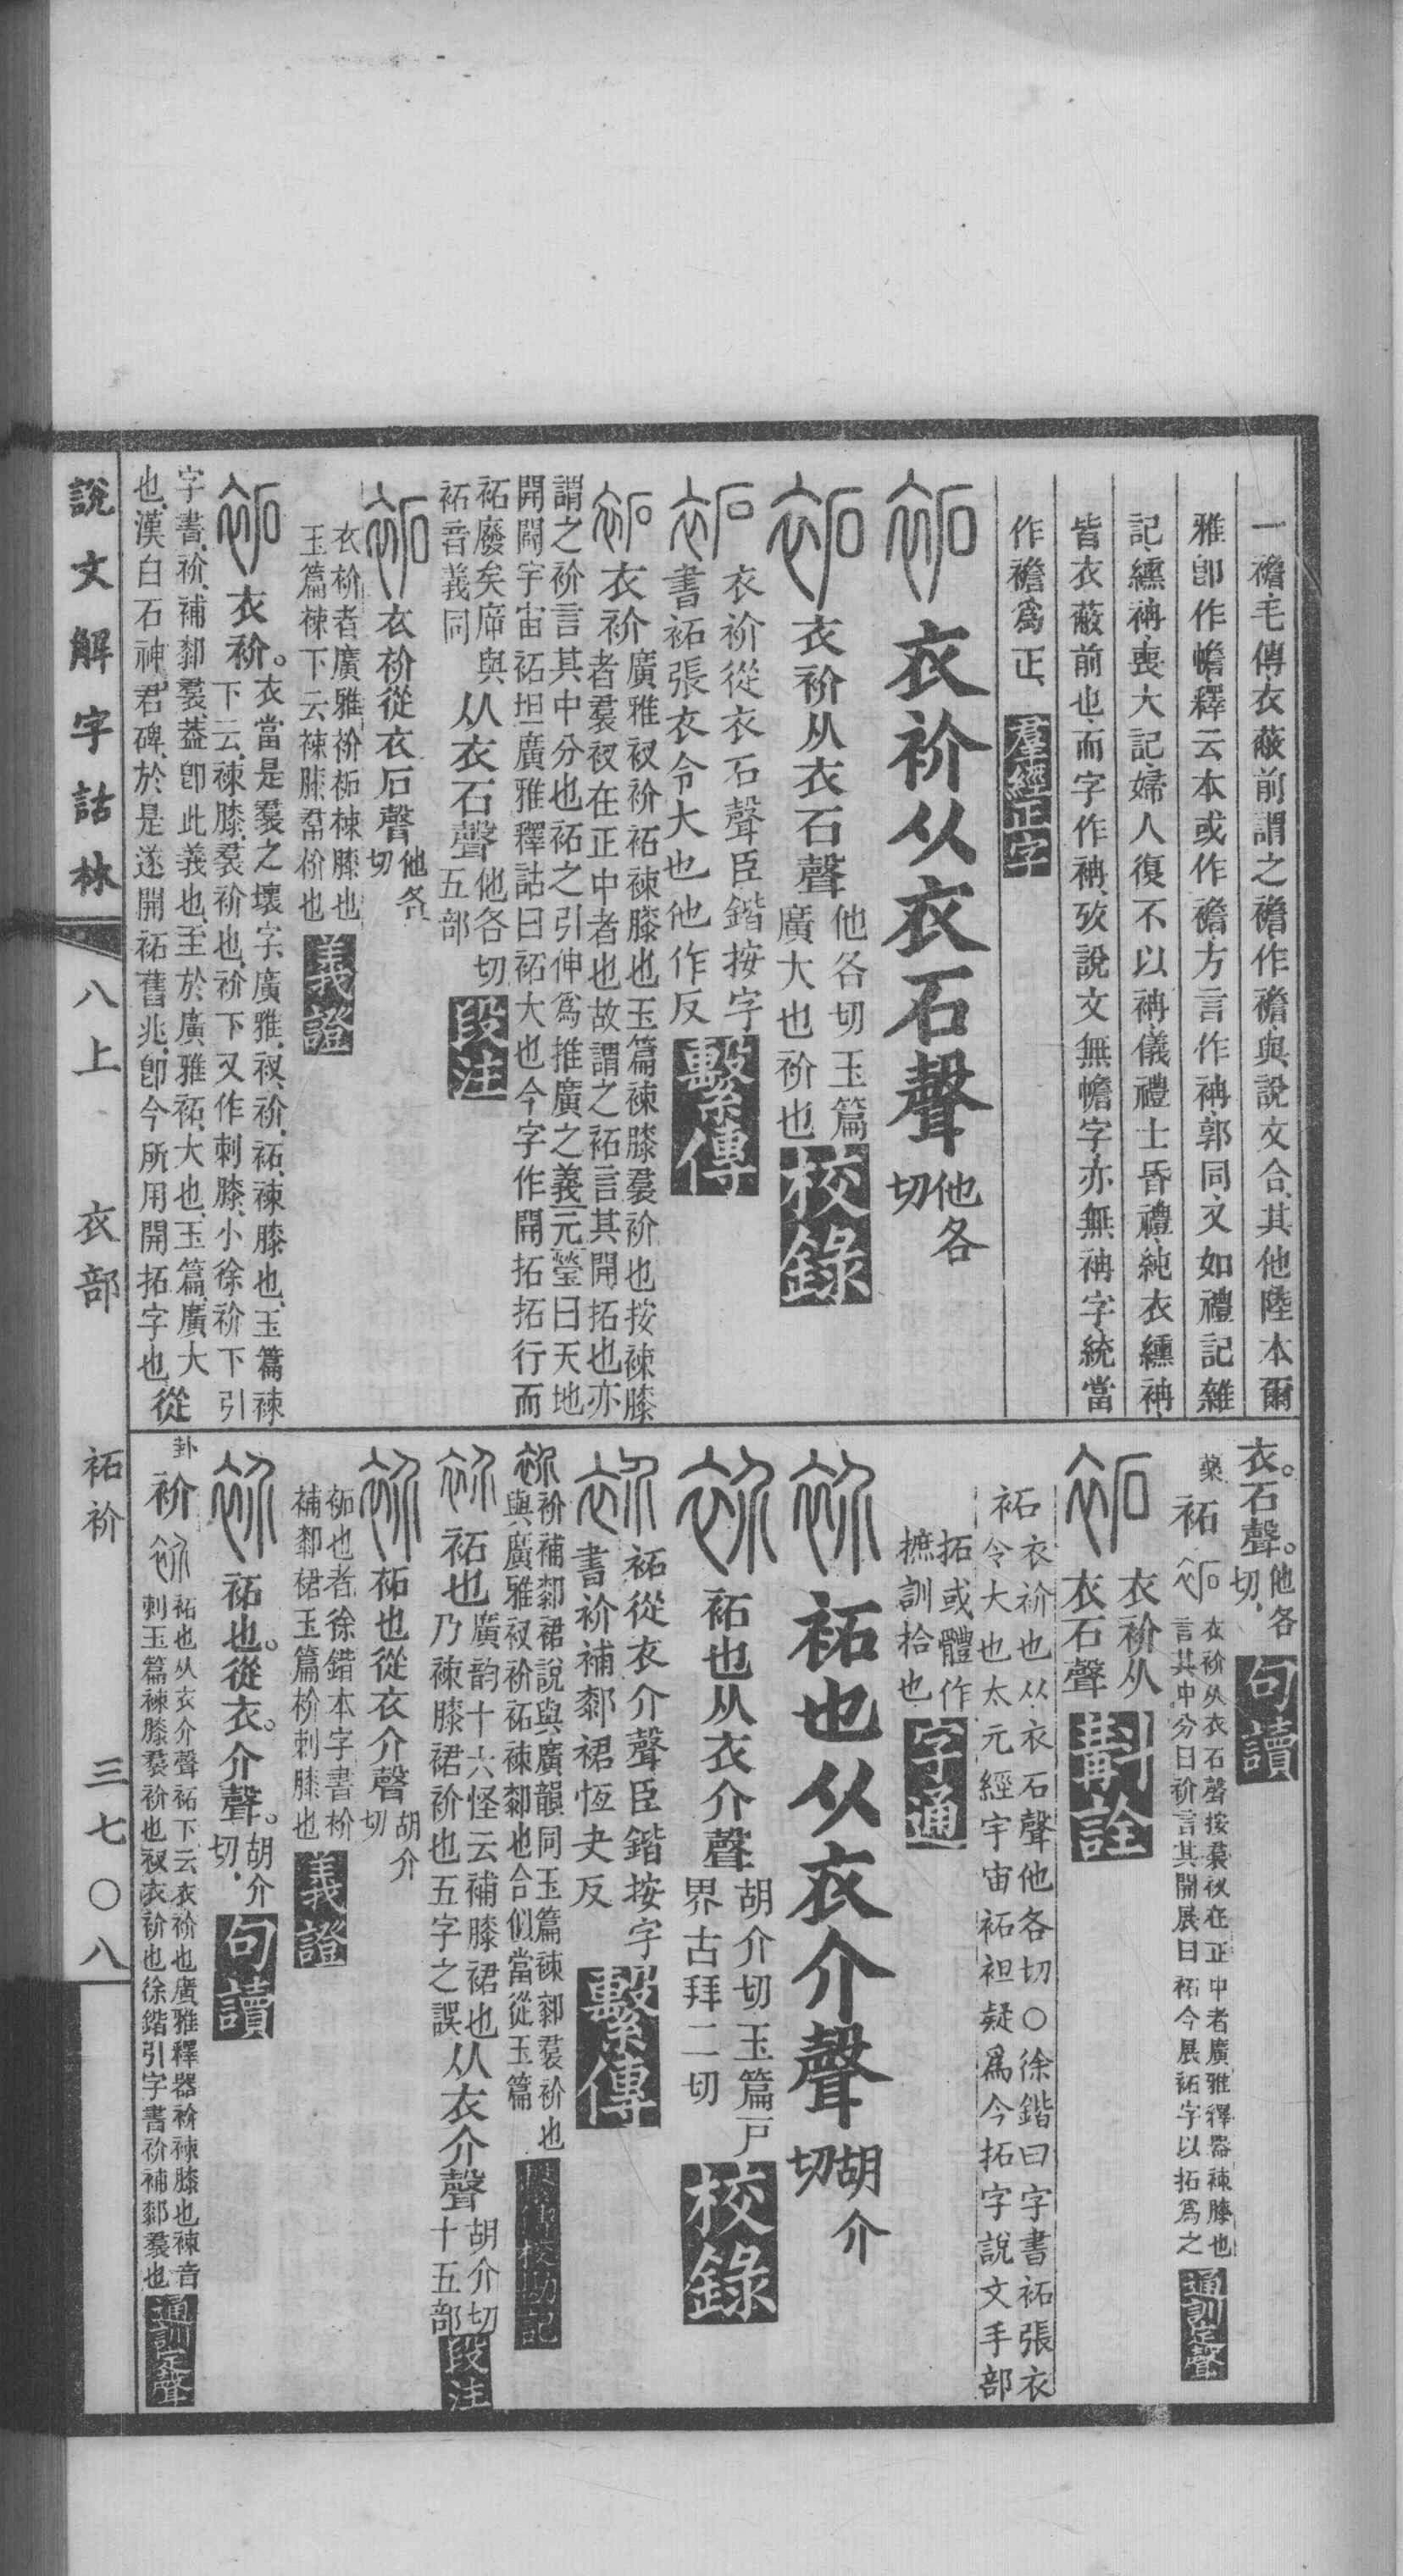 一襜毛傳衣蔽前謂之襜作襜與說文合其他陸本爾
雅卽作幨釋云本或作襜方言作袡郭同又如禮記雜
記纁袡喪大記婦人復不以袡儀禮士昏禮純衣纁袡
皆衣蔽前也而字作袡攷說文無幨字亦無袡字統當
作襜爲正羣經正字
衣衸从衣石聲他各切
衣衸从衣石聲他各切玉篇廣大也衸也校錄
衣衸從衣石聲臣鍇按字書袥張衣令大也他作反繫傳
衣衸廣雅衩衸袥䘨膝也玉篇䘨膝裠衸也按䘨膝
者裠衩在正中者也故謂之袥言其開拓也亦
謂之衸言其中分也袥之引伸爲推廣之義元瑩曰天地
開闢宇宙袥坦廣雅釋詁曰袥大也今字作開拓拓行而
袥廢矣㡿與袥音義同从衣石聲他各切五部段注
衣衸從衣石聲他各切
衣衸者廣雅衸袥䘨膝也
玉篇䘨下云䘨膝帬衸也義證
衣衸。衣當是裠之壞字廣雅衩衸袥䘨膝也玉篇䘨
下云䘨膝裠衸也衸下又作刺膝小徐衸下引
字書衸補䣛裠葢卽此義也至於廣雅袥大也玉篇廣大
也漢白石神君碑於是遂開袥舊兆卽今所用開拓字也從
衣。石聲。他各切句讀
藥袥衣衸从衣石聲按裠衩在正中者廣雅釋器䘨膝也
言其中分曰衸言其開展曰袥今展袥字以拓爲之通訓定聲
衣衸从衣石聲斠詮
袥衣衸也从衣石聲他各切○徐鍇曰字書袥張衣
令大也太元經宇宙袥袒疑爲今拓字說文手部
拓或體作摭訓拾也字通
袥也从衣介聲胡介切
袥也从衣介聲胡介切玉篇戸界古拜二切校錄
袥從衣介聲臣鍇按字書衸補䣛裙恆夬反繫傳
衸補䣛裙說與廣韻同玉篇䘨䣛裠衸也
與廣雅衩衸袥䘨䣛也合似當從玉篇繫傳校勘記
袥也廣韵十六怪云補膝裙也乃䘨膝裙衸也五字之誤从衣介聲胡介切十五部段注
袥也從衣介聲胡介切
袥也者徐鍇本字書衸
補䣛裙玉篇衸刺膝也義證
袥也。從衣。介聲。胡介切句讀
卦衸袥也从衣介聲袥下云衣衸也廣雅釋器衸䘨膝也䘨音
刺玉篇䘨膝裠衸也衩衣衸也徐鍇引字書衸補䣛裠也通訓定聲
說文解字詁林 八上 衣部 袥衸 三七〇八